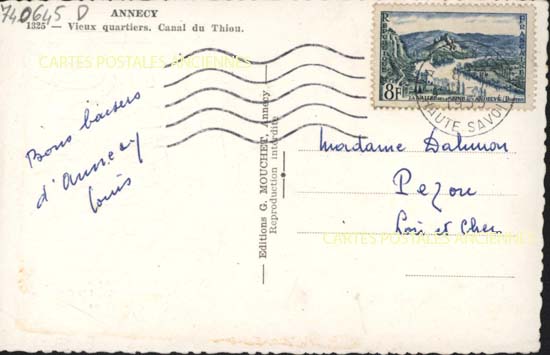 740645 D
ANNECY
1325 — Vieux quartiers. Canal du Thiou.
CARTES POSTALES ANCIENNES
Bons baisers
d'Annecy
Louis
Editions G. MOUCHET, Annecy
Reproduction interdite
8F
HAUTE SAVOIE
Madame Dalmon
Pezou
Loir et Cher
CARTES POSTALES ANCIENNES